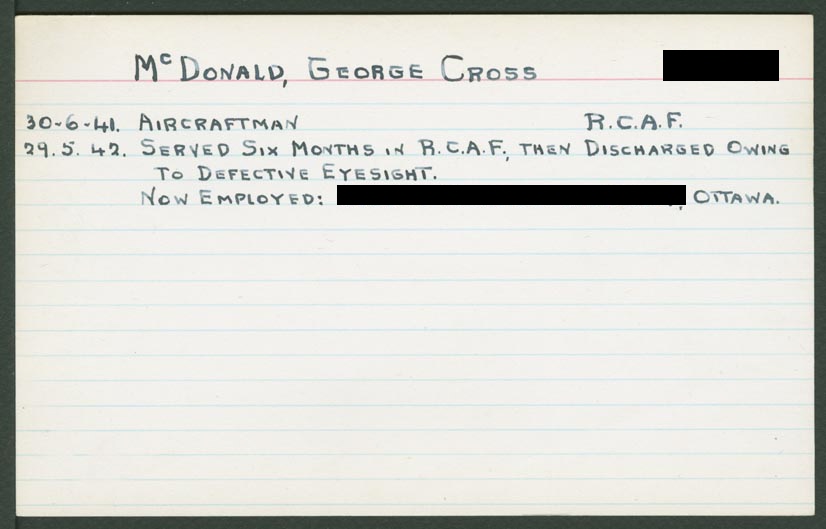 McDONALD, GEORGE CROSS
30-6-41. AIRCRAFTMAN R.C.A.F.
29.5.42. SERVED SIX MONTHS IN R.C.A.F., THEN DISCHARGED OWING
TO DEFECTIVE EYESIGHT.
NOW EMPLOYED: , OTTAWA.